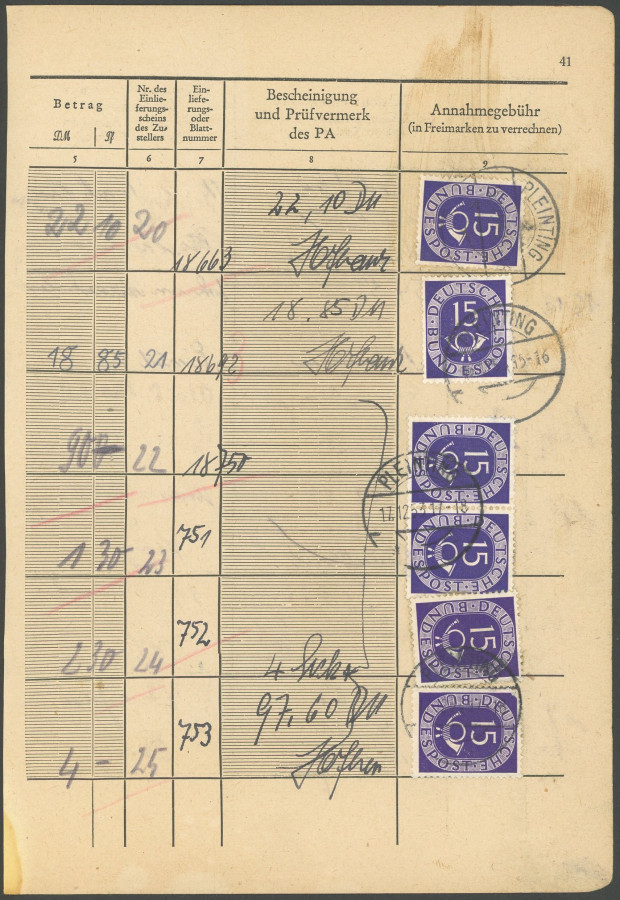 41
Betrag
DM Pf
Nr. des
Einlie-
ferungs-
scheins
des Zu-
stellers
Ein-
liefe-
rungs-
oder
Blatt-
nummer
Bescheinigung
und Prüfvermerk
des PA
Annahmegebühr
(in Freimarken zu verrechnen)
5 6 7 8 9
22 10 20 18663 22,10 DM
15 DEUTSCHE BUNDESPOST
PLEINTING
18 85 21 18692 18.85 DM
15 DEUTSCHE BUNDESPOST
-16
22 18750
15 DEUTSCHE BUNDESPOST
PLEINTING
17.12.
-18
1 30 23 751
15 DEUTSCHE BUNDESPOST
2 30 24 752
4
15 DEUTSCHE BUNDESPOST
97,60 DM
4 - 25 753
15 DEUTSCHE BUNDESPOST